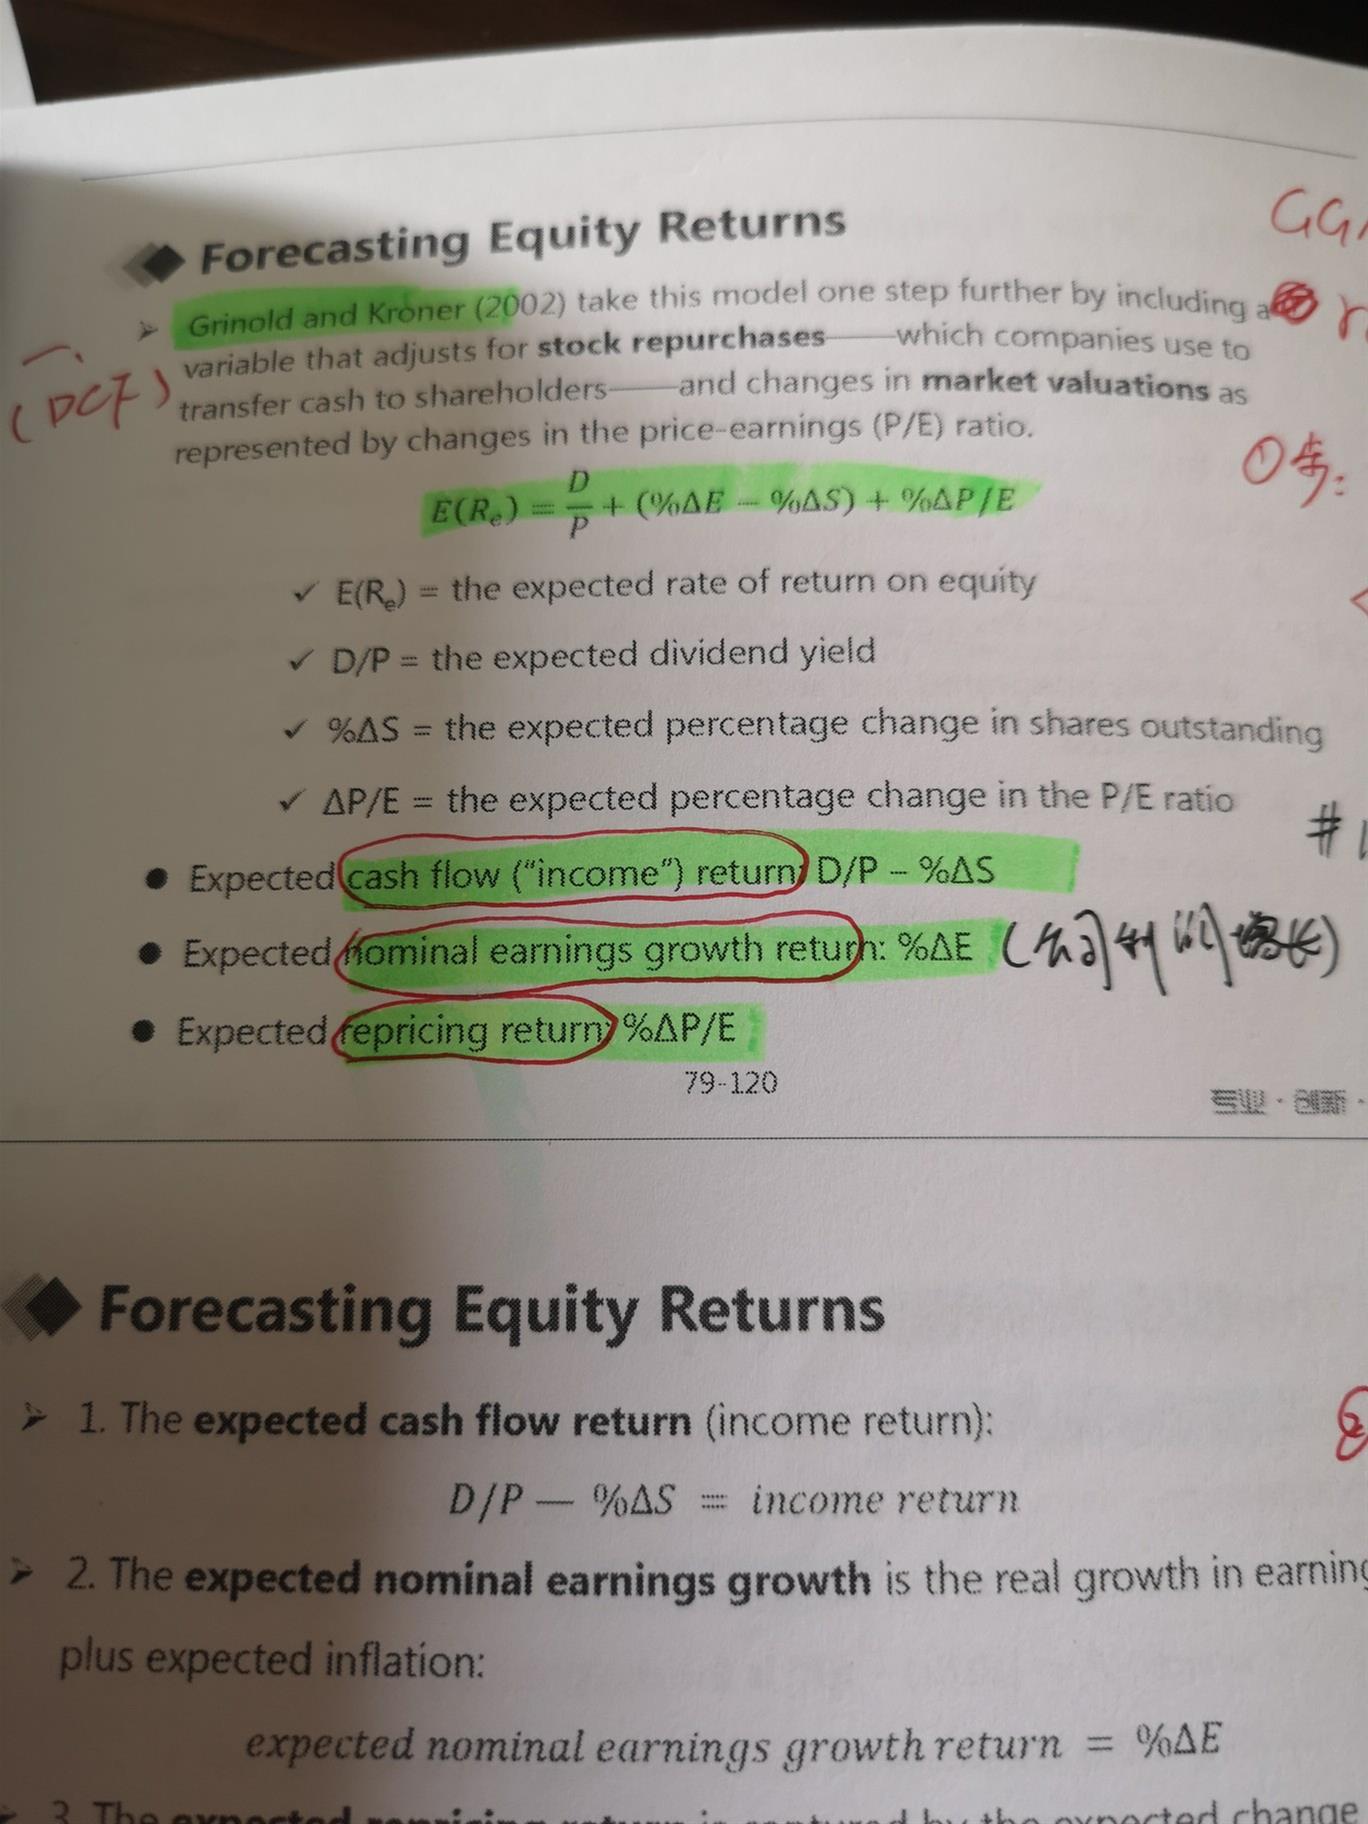 Forecasting Equity Returns
GG
Grinold and Kroner (2002) take this model one step further by including a
variable that adjusts for stock repurchases——which companies use to
transfer cash to shareholders——and changes in market valuations as
represented by changes in the price-earnings (P/E) ratio.
一、
(DCF)
①步:
E(Re) = D/P + (%ΔE − %ΔS) + %ΔP/E
✓ E(Re) = the expected rate of return on equity
✓ D/P = the expected dividend yield
✓ %ΔS = the expected percentage change in shares outstanding
✓ ΔP/E = the expected percentage change in the P/E ratio
#
● Expected cash flow ("income") return: D/P − %ΔS
● Expected nominal earnings growth return: %ΔE (公司利润增长)
● Expected repricing return: %ΔP/E
79-120
专业·创新·
Forecasting Equity Returns
➢ 1. The expected cash flow return (income return):
D/P — %ΔS = income return
➢ 2. The expected nominal earnings growth is the real growth in earning
plus expected inflation:
expected nominal earnings growth return = %ΔE
3. The expected repricing return is captured by the expected change